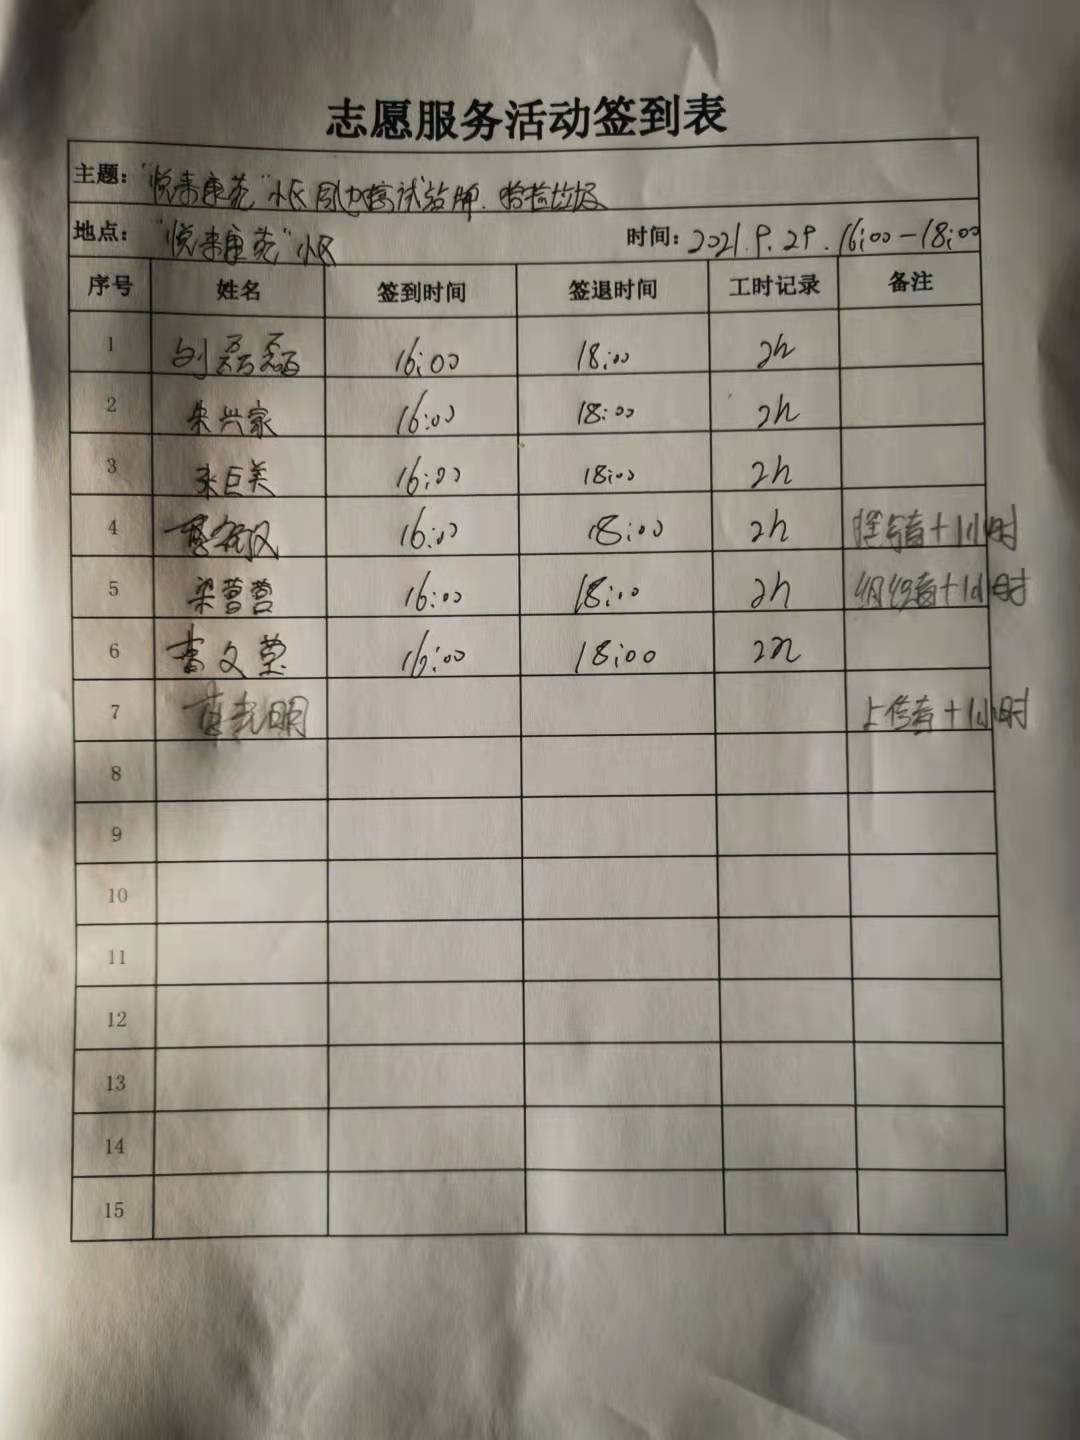 志愿服务活动签到表
主题："悦来康苑"小区 捡拾垃圾
地点："悦来康苑"小区 时间：2021.9.29.16:00-18:00
序号 姓名 签到时间 签退时间 工时记录 备注
1 刘磊磊 16:00 18:00 2h
2 朱兴家 16:00 18:00 2h
3 张巨美 16:00 18:00 2h
4 16:00 18:00 2h 撰稿者+1小时
5 梁营营 16:00 18:00 2h 组织者+1小时
6 16:00 18:00 2h
7 上传者+1小时
8
9
10
11
12
13
14
15